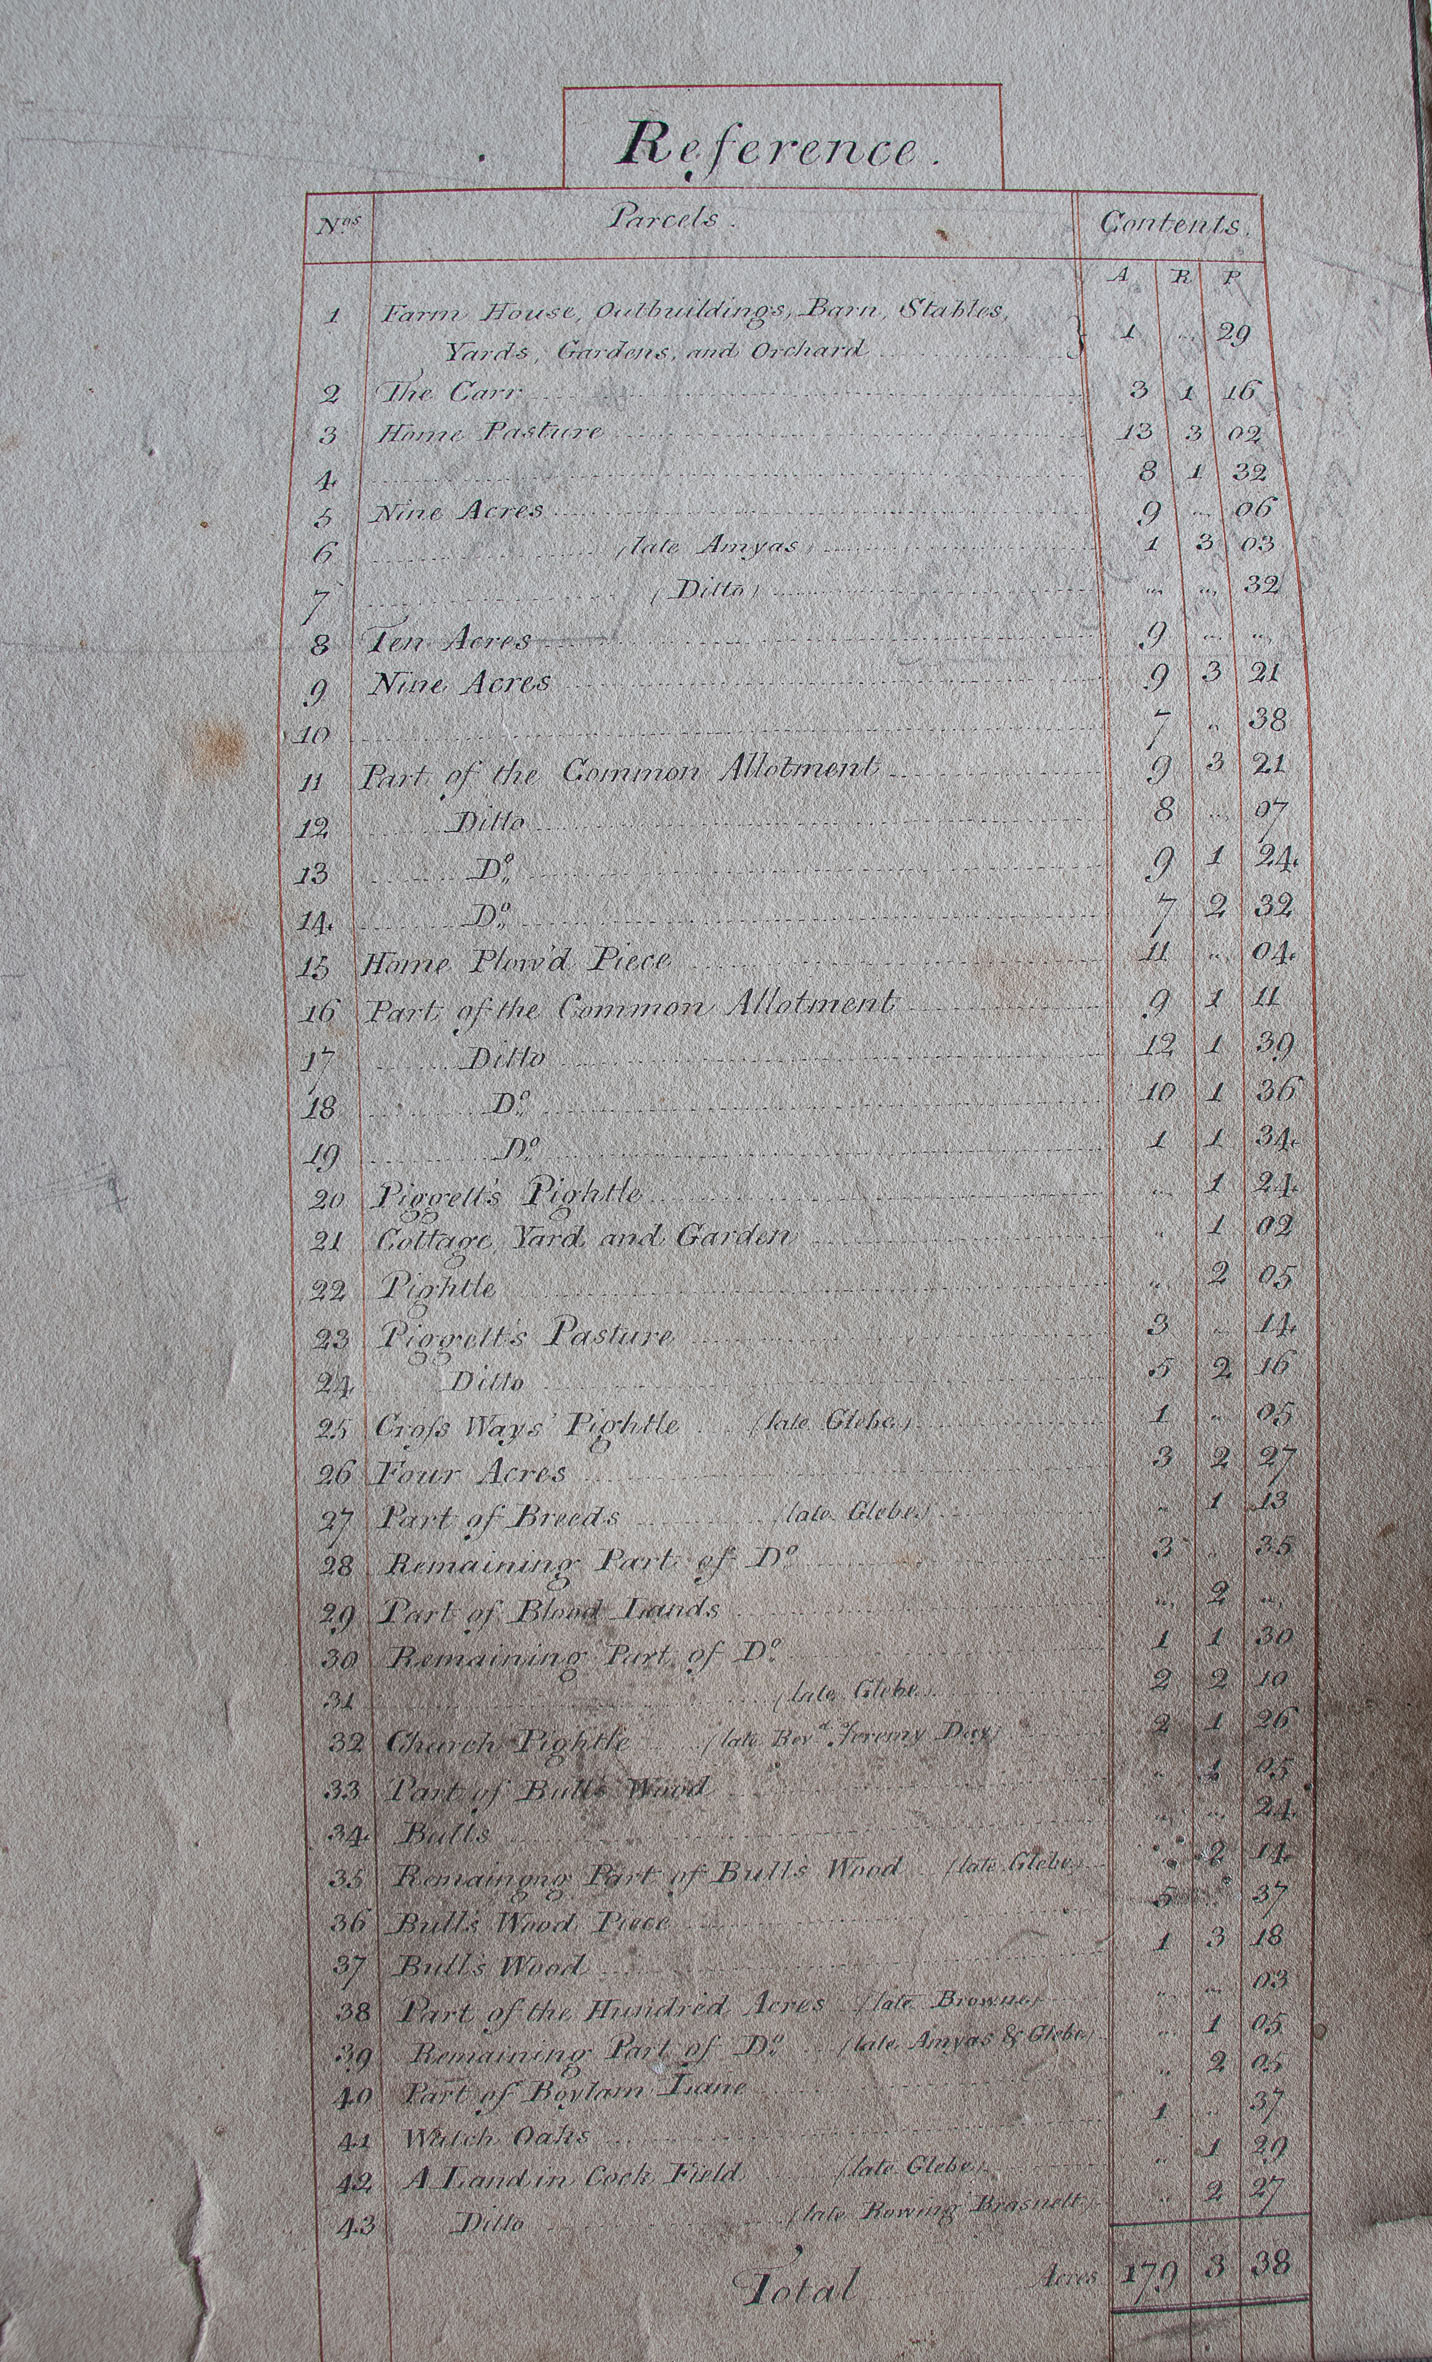 Reference.
Nos Parcels. Contents.
A R P
1 Farm House, Outbuildings, Barn, Stables,
Yards, Gardens, and Orchard } 1 .. 29
2 The Carr 3 1 16
3 Home Pasture 13 3 02
4 8 1 32
5 Nine Acres 9 .. 06
6 (late Amyas) 1 3 03
7 (Ditto) .. .. 32
8 Ten Acres 9 .. ..
9 Nine Acres 9 3 21
10 7 .. 38
11 Part of the Common Allotment 9 3 21
12 Ditto 8 .. 07
13 Do. 9 1 24
14 Do. 7 2 32
15 Home Plow'd Piece 11 .. 04
16 Part of the Common Allotment 9 1 11
17 Ditto 12 1 39
18 Do. 10 1 36
19 Do. 1 1 34
20 Piggett's Pightle .. 1 24
21 Cottage, Yard and Garden .. 1 02
22 Pightle .. 2 05
23 Piggett's Pasture 3 .. 14
24 Ditto 5 2 16
25 Croſs Ways' Pightle (late Glebe) 1 .. 05
26 Four Acres 3 2 27
27 Part of Breeds (late Glebe) .. 1 13
28 Remaining Part of Do. 3 .. 35
29 Part of Blood Lands .. 2 ..
30 Remaining Part of Do. 1 1 30
31 (late Glebe) 2 2 10
32 Church Pightle (late Revd. Jeremy Day) 2 1 26
33 Part of Bull's Wood .. 1 05
34 Bulls .. .. 24
35 Remainong Part of Bull's Wood (late Glebe) .. 2 14
36 Bull's Wood Piece 5 .. 37
37 Bull's Wood 1 3 18
38 Part of the Hundred Acres (late Browne) .. .. 03
39 Remaining Part of Do. (late Amyas & Glebe) .. 1 05
40 Part of Boylam Lane .. 2 05
41 Watch Oaks 1 .. 37
42 A Land in Cock Field (late Glebe) .. 1 29
43 Ditto (late Rowing Brasnett) .. 2 27
Total Acres 179 3 38